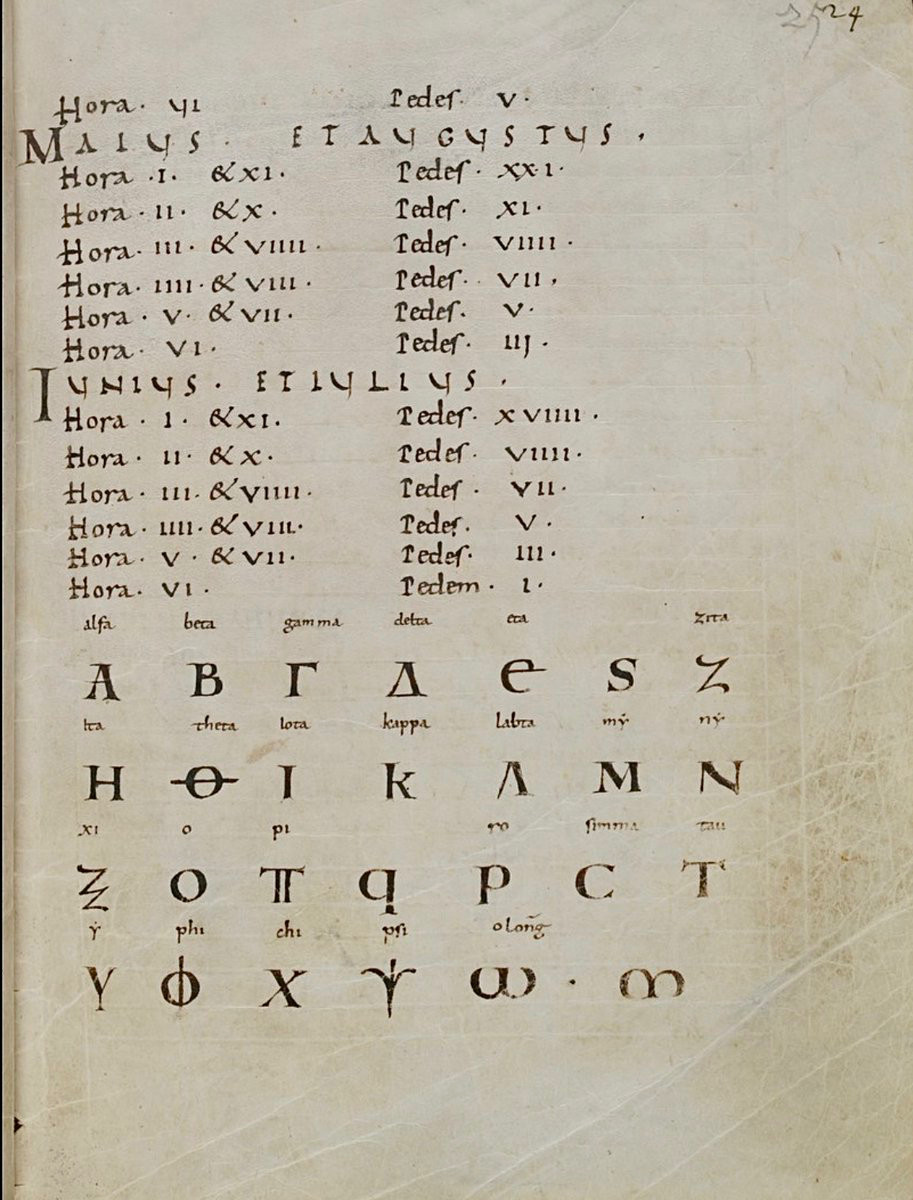 24
Hora · VI Pedes · V ·
MAIUS · ET AUGUSTUS ·
Hora · I · & XI · Pedes · XXI ·
Hora · II · & X · Pedes · XI ·
Hora · III · & VIIII · Pedes · VIIII ·
Hora · IIII · & VIII · Pedes · VII ·
Hora · V · & VII · Pedes · V ·
Hora · VI · Pedes · IIJ ·
IUNIUS · ET IULIUS ·
Hora · I · & XI · Pedes · XVIIII ·
Hora · II · & X · Pedes · VIIII ·
Hora · III · & VIIII · Pedes · VII ·
Hora · IIII · & VIII · Pedes · V ·
Hora · V · & VII · Pedes · III ·
Hora · VI · Pedem · I ·
alfa beta gamma delta eta zita
Α Β Γ Δ Ε S Ζ
ita theta iota kappa labta mẏ nẏ
Η Θ Ι Κ Λ Μ Ν
xi o pi ro simma tau
Ξ Ο Π q Ρ C Τ
ẏ phi chi psi o long̅
Υ Φ Χ Ψ ω · ო